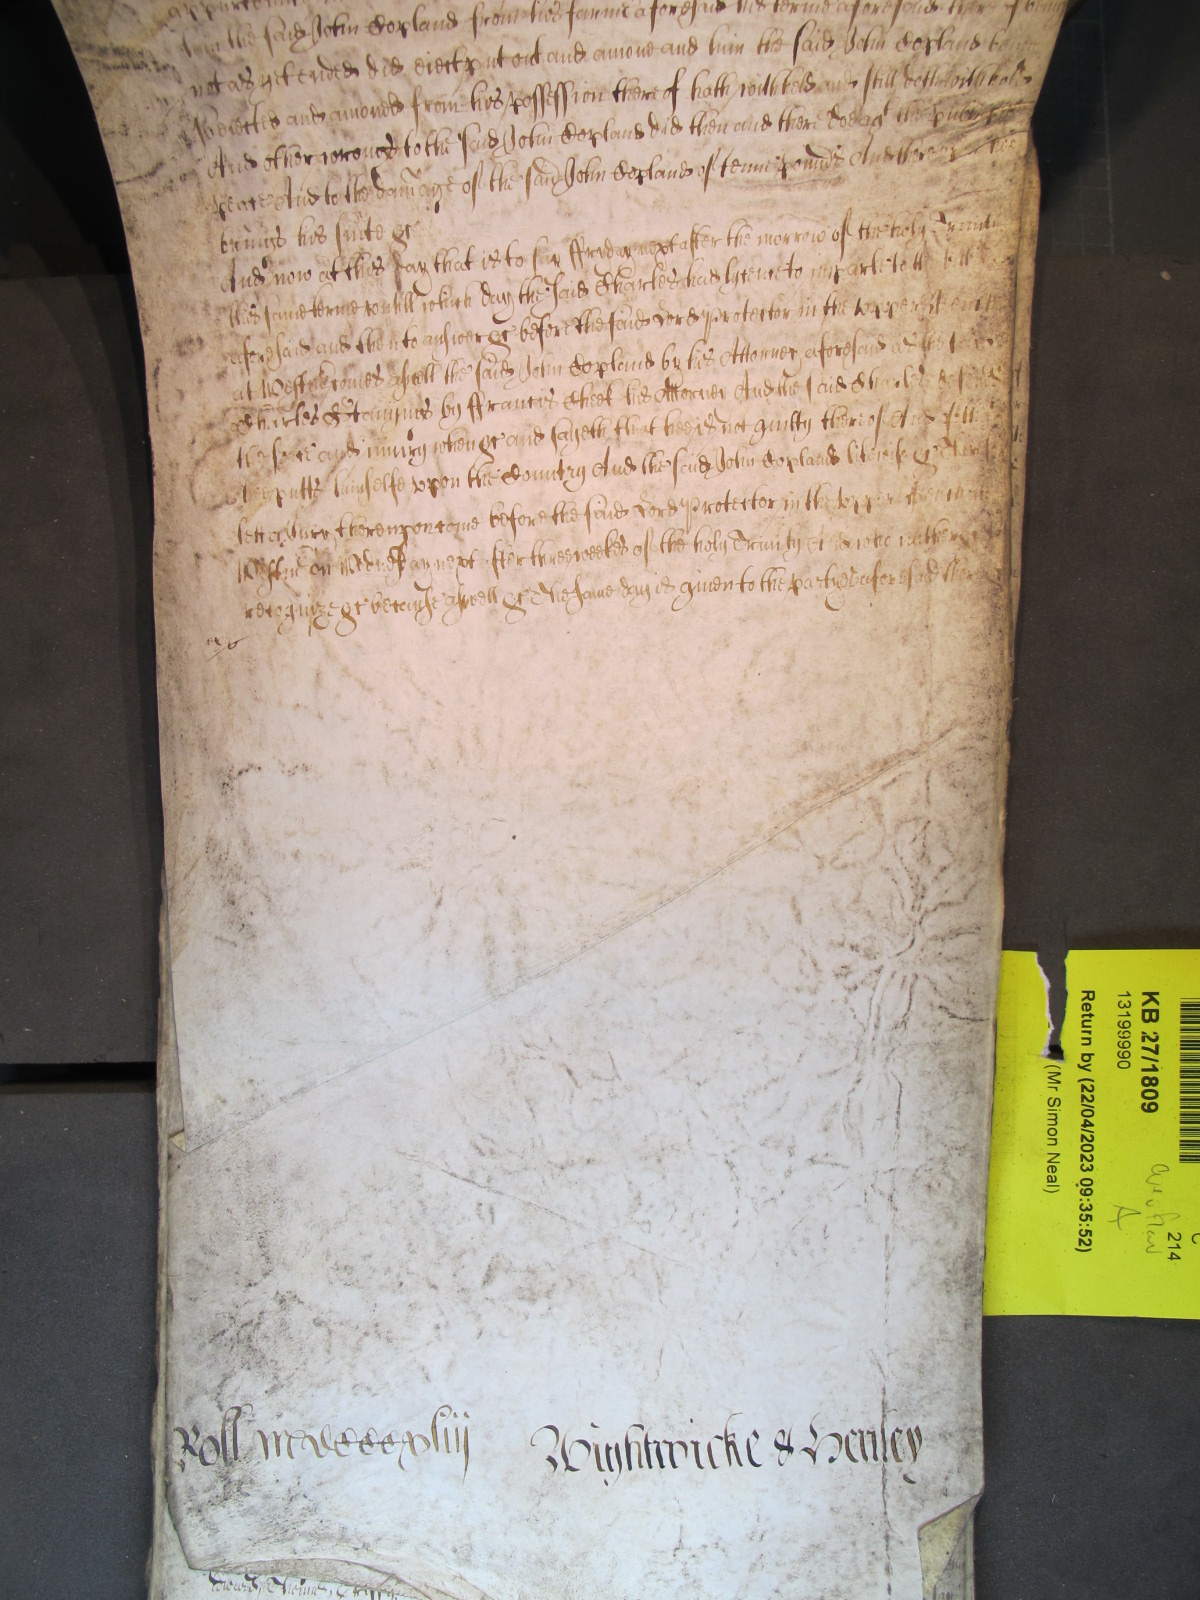 him the said John Copland from his farme aforesaid his terme aforesaid thereof being
not as yet ended did eiect put out and amove and him the said John Copland so
eiected and amoved from his possession thereof hath withheld and still doth withhold
And other wrongs to the said John Copland did then and there against the publique
peace And to the damage of the said John Copland of tenne pounds And thereof he
brings his suite &c
And now at this day that is to say ffryday next after the morrow of the holy Trinitie
this same terme untill which day the said Charles had lycence to imparle to the bill
aforesaid and then to answer &c before the said Lord Protector in the upper Bench
at Westm comes aswell the said John Copland by his Attorney aforesaid as the said
Charles by ffrancis Cheek his Attorney And the said Charles defends
the force and iniury when &c and sayeth that hee is not guilty thereof And of this
hee putts himselfe upon the Country And the said John Copland likewise &c Therefore
lett a Jury thereupon come before the said Lord Protector in the upper Bench at
Westm on next after three weekes of the holy Trinity And who neither
recognize &c because aswell &c The same day is given to the partyes aforesaid there
Roll mdccccxliii Wightwicke & Henley
KB 27/1809
13199990
Return by (22/04/2023 09:35:52)
(Mr Simon Neal)
214